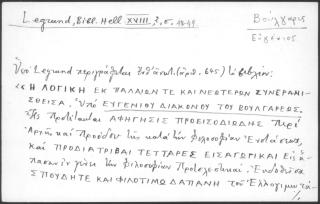 Legrand, Bibl. Hell XVIII, 2, σ. 48-49
Βούλγαρις
Εὐγένιος
Ὑπὸ Legrand περιγράφεται (ἀρ. 645) τὸ βιβλίον:
« Η ΛΟΓΙΚΗ ΕΚ ΠΑΛΑΙΩΝ ΤΕ ΚΑΙ ΝΕΩΤΕΡΩΝ ΣΥΝΕΡΑΝΙ-
ΣΘΕΙΣΑ, Ὑπὸ ΕΥΓΕΝΙΟΥ ΔΙΑΚΟΝΟΥ ΤΟΥ ΒΟΥΛΓΑΡΕΩΣ.
Ἧς Προτέτακται ΑΦΗΓΗΣΙΣ ΠΡΟΕΙΣΟΔΙΩΔΗΣ Περὶ
Ἀρχῆς καὶ Προόδου τῆς κατὰ τὴν Φιλοσοφίαν Ἐνστάσεως,
ΚΑΙ ΠΡΟΔΙΑΤΡΙΒΑΙ ΤΕΤΤΑΡΕΣ ΕΙΣΑΓΩΓΙΚΑΙ Εἰς
ἅπασαν ἐν γένει τὴν Φιλοσοφίαν Προτελεστικαί. Ἐκδοθεῖσα
ΣΠΟΥΔΗ ΤΕ ΚΑΙ ΦΙΛΟΤΙΜΩ ΔΑΠΑΝΗ τοῦ Ἐλλογιμωτά-